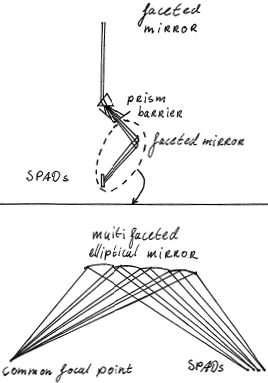 faceted
mirror
prism
barrier
faceted mirror
SPADs
multi faceted
elliptical mirror
common focal point
SPADs